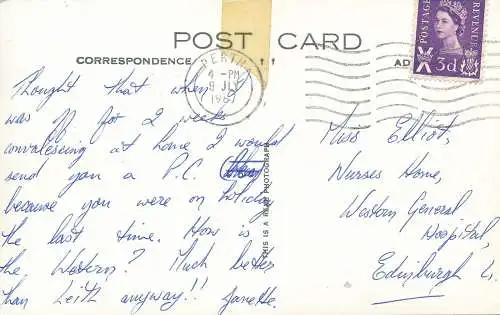 POST CARD
CORRESPONDENCE
AD
POSTAGE
REVENUE
3d
PERTH
4-PM
1967
THIS IS A REAL PHOTOGRAPH
Thought that when I
was off for 2 weeks
convalescing at home I would
send you a P.C.
because you were on holiday
the last time. How is
the Western? Much better
than Leith anyway!! Janette.
Miss Elliot,
Nurses Home,
Western General
Hospital,
Edinburgh 4.